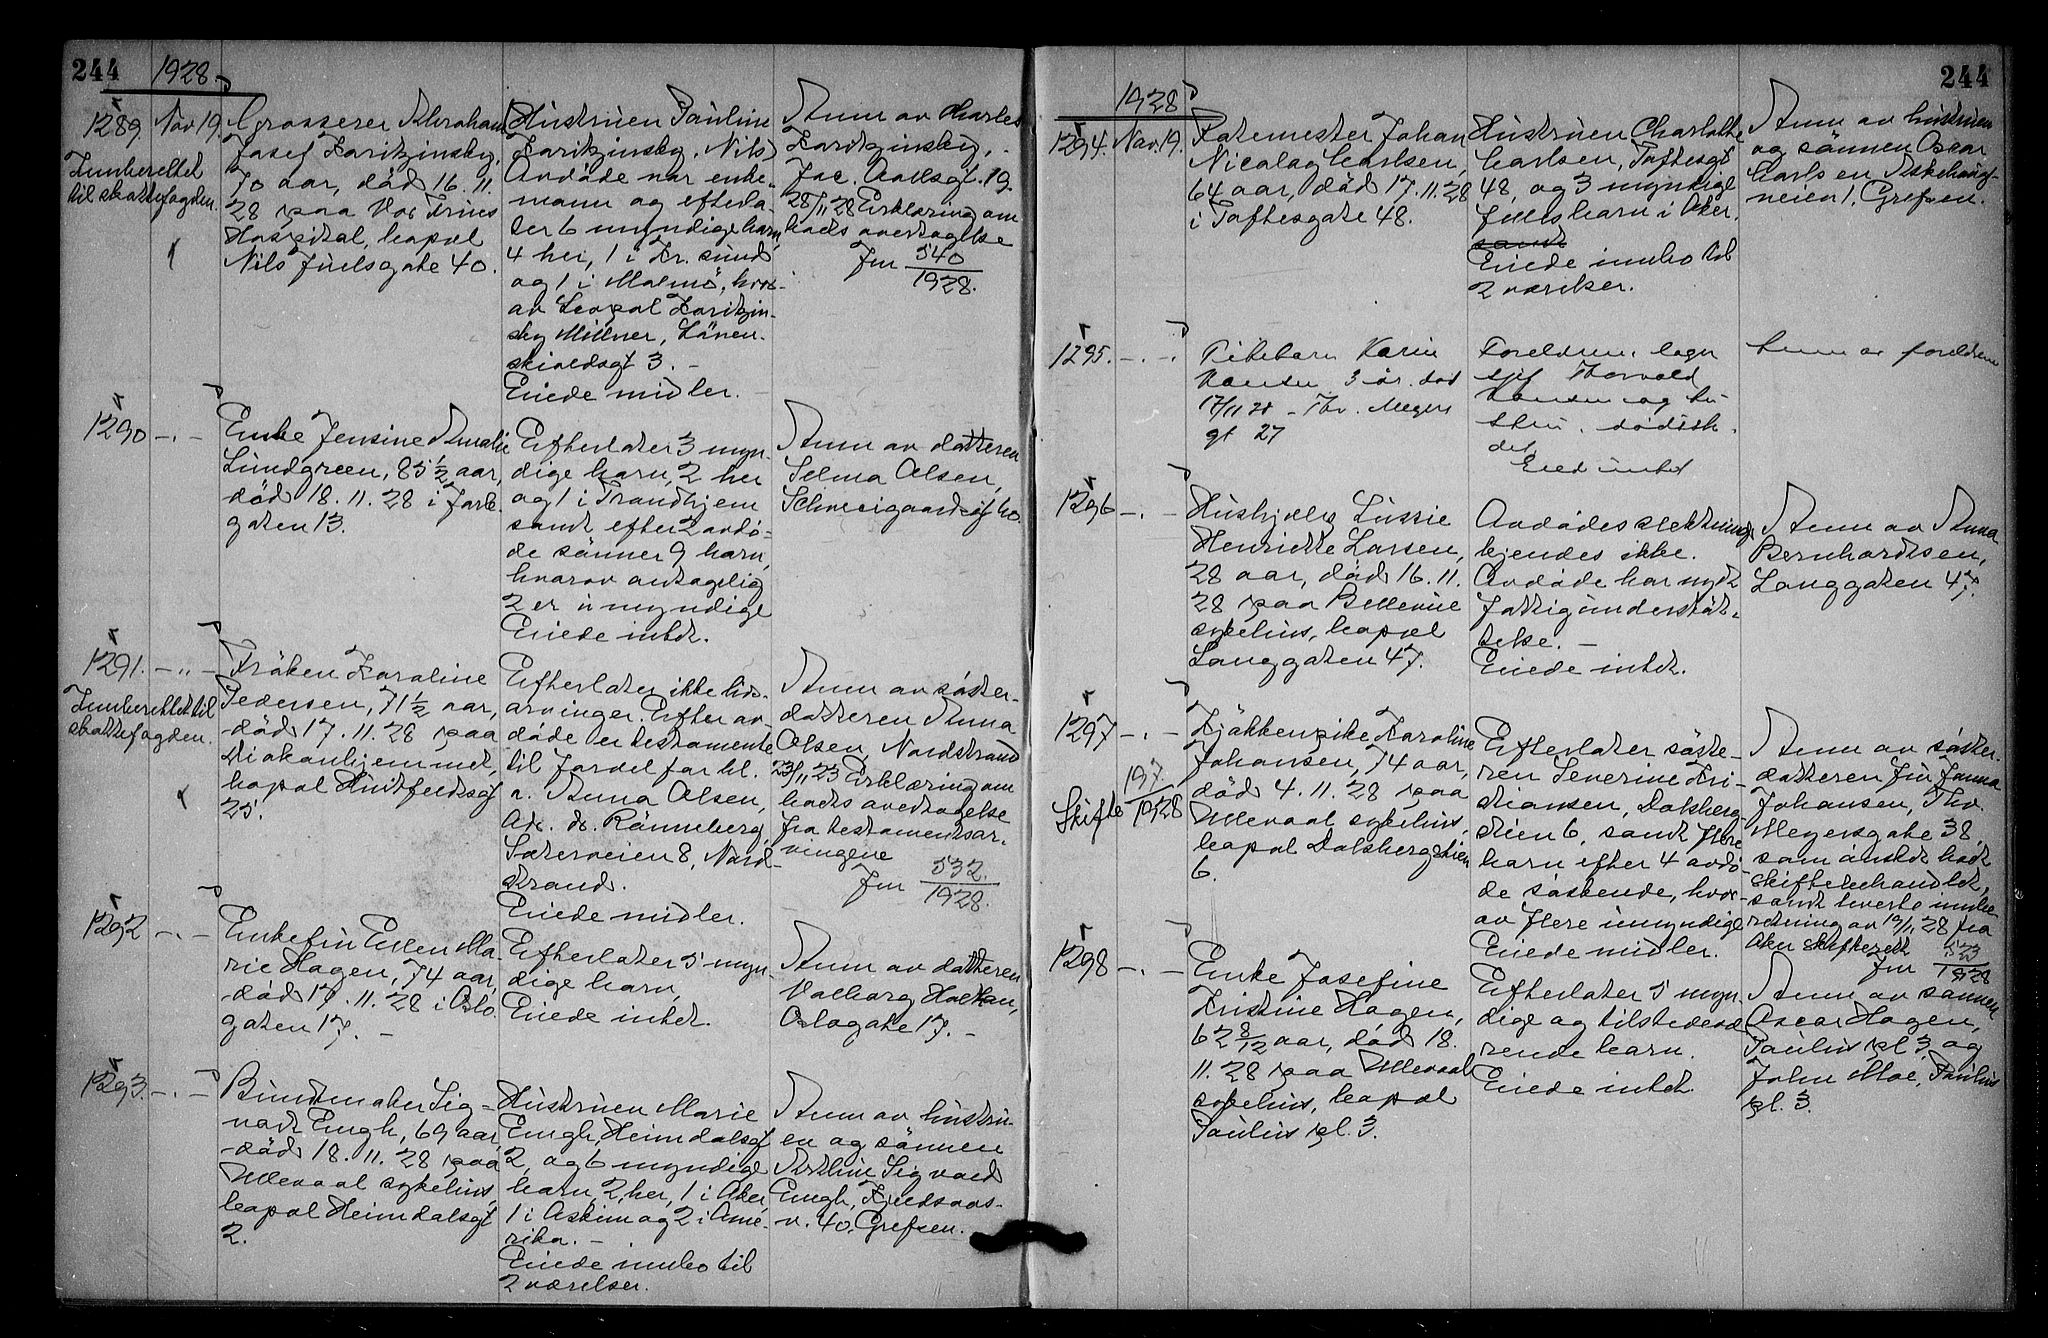 244
1928.
1289.
Nov 19.
Indberettet
til skattefogden.
Grosserer Abraham
Josef Koritzinsky,
70 aar, död 16.11.
28 paa Vor Frues
Hospital, bopæl
Nils Juelsgate 40.
Hustruen Pauline
Koritzinsky, Nils
Avdöde var enke-
mann og efterla-
ter 6 myndige barn,
4 her, 1 i Kr. sund
og 1 i Malmö, hvor-
av Leopol Koritzin-
sky Millner, Löven-
skioldsgt 3. -
Eiede midler.
Anm av Charles
Koritzinsky,
Jac. Aallsgt. 19.
28/11 28 Erklæring om
boets overtagelse
Jnr 540/1928.
1290 -.-
Enke Jensine Amalie
Lundgreen, 85 1/2 aar,
död 18.11.28 i Jarle
gaten 13.
Efterlater 3 myn
dige barn, 2 her
og 1 i Trondhjem
samt efter 2 avdö-
de sönner 9 barn,
hvorav antagelig
2 er umyndige
Eiede intet.
Anm av datteren
Selma Olsen,
Schweigaardsgt 60.
1291. -"-
Indberettet til
skattefogden.
Fröken Karoline
Pedersen, 71 1/2 aar,
död 17.11.28 paa
Diakonhjemmet,
bopæl Huitfeldtsgt
25.
Efterlater ikke livs-
arvinger. Efter av-
döde er testamente
til fordel for bl.
a. Anna Olsen,
Adr. dr. Rönneberg,
Sæterveien 8, Nord-
strand.
Eiede midler.
Anm av söster-
datteren Anna
Olsen, Nordstrand
23/11 23 Erklæring om
boets overtagelse
fra testamentsar-
vingene
Jnr 532./1928.
1292 -.-
Enkefru Ellen Ma-
rie Hagen, 74 aar,
död 17.11.28 i Oslo
gaten 17. -
Efterlater 5 myn
dige barn,
Eiede intet.
Anm av datteren
Valborg Holtan,
Oslogate 17. -
1293. -.-
Buntmaker Sig-
vart Engh, 69 aar,
död 18.11.28 paa
Ullevaal sykehus,
bopæl Heimdalsgt
2.
Hustruen Marie
Engh, Heimdalsgt
2, og 6 myndige
barn, 2 her, 1 i Aker,
1 i Askim og 2 i Ame-
rika. -
Eiede innbo til
2 værelser.
Anm av hustru-
en og sönnen
Sigvald
Engh, Kjelsaas-
v. 40, Grefsen.
244
1928
1294. Nov. 19.
Rotemester Johan
Nicolay Carlsen,
64 aar, död 17.11.28
i Toftesgate 48.
Hustruen Charlotte
Carlsen, Toftesgt
48, og 3 myndige
fælles barn i Aker.
samt
Eiede innbo til
2 værelser.
Anm av hustruen
og sönnen Oscar
Carlsen Askehaug-
veien 1, Grefsen.
1295. -.-
Pikebarn Karin
Hansen 3 år. död
17/11 28 - Thv. Meyers
gt 27
Foreldrene, lager
sjef Thorvald
Hansen og hu-
stru, dödsste-
det
Eied intet
Anm av foreldrene
1296 -.-
Hushjelp Lussie
Henriette Larsen,
28 aar, död 16.11.
28 paa Bellevue
sykehus, bopæl
Langgaten 47.
Avdödes slektninge
kjendes ikke.
Avdöde har nydt
fattigunderstöt-
telse. -
Eiede intet.
Anm av Anna
Bernhardtsen,
Langgaten 47.
1297 -.-
Skifte 197/1928
Kjökkenpike Karoline
Johansen, 74 aar,
död 4.11.28 paa
Ullevaal sykehus,
bopæl Dalsbergstien
6.
Efterlater söste-
ren Severine Kri-
stiansen, Dalsberg-
stien 6, samt flere
barn efter 4 avdö-
de söskende, hvor-
av flere umyndige
Eiede midler.
Anm av söster-
datteren frk Janna
Johansen, Thv.
Meyersgate 38,
som önsket boet
skiftebehandlet,
samt innbe-
retning av 19/11 28 fra
Aker skifterett
Jnr 533/1928
1298 -.-
Enke Josefine
Kristine Hagen,
62 8/12 aar, död 18.
11.28 paa Ullevaal
sykehus, bopæl
Paulus pl. 3.
Efterlater 5 myn-
dige og tilstedevæ
rende barn.
Eiede intet
Anm av sönnen
Oscar Hagen,
Paulus pl 3 og
John Moe, Paulus
pl. 3.